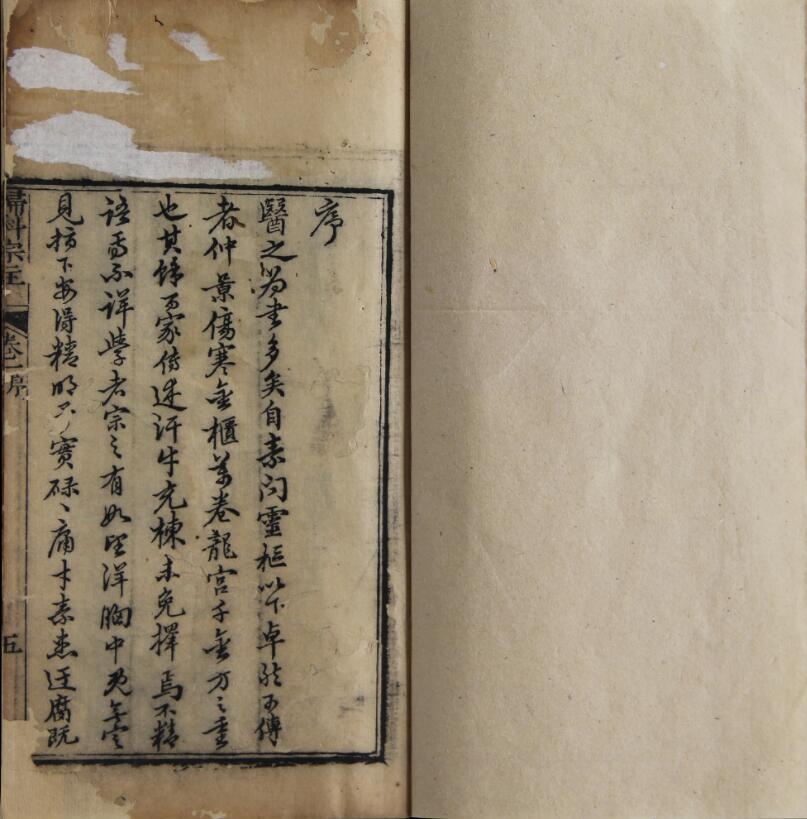 序
醫之為書多矣自素问靈樞以下卓然可傳
者仲景傷寒金櫃萬卷龍宮千金方之重
也其餘百家傳述汗牛充棟未免擇焉不精
語焉不詳學者宗之有如望洋胸中死無定
見指下安得精明不實碌碌庸才素患迂腐既
婦科宗主
卷一序
五